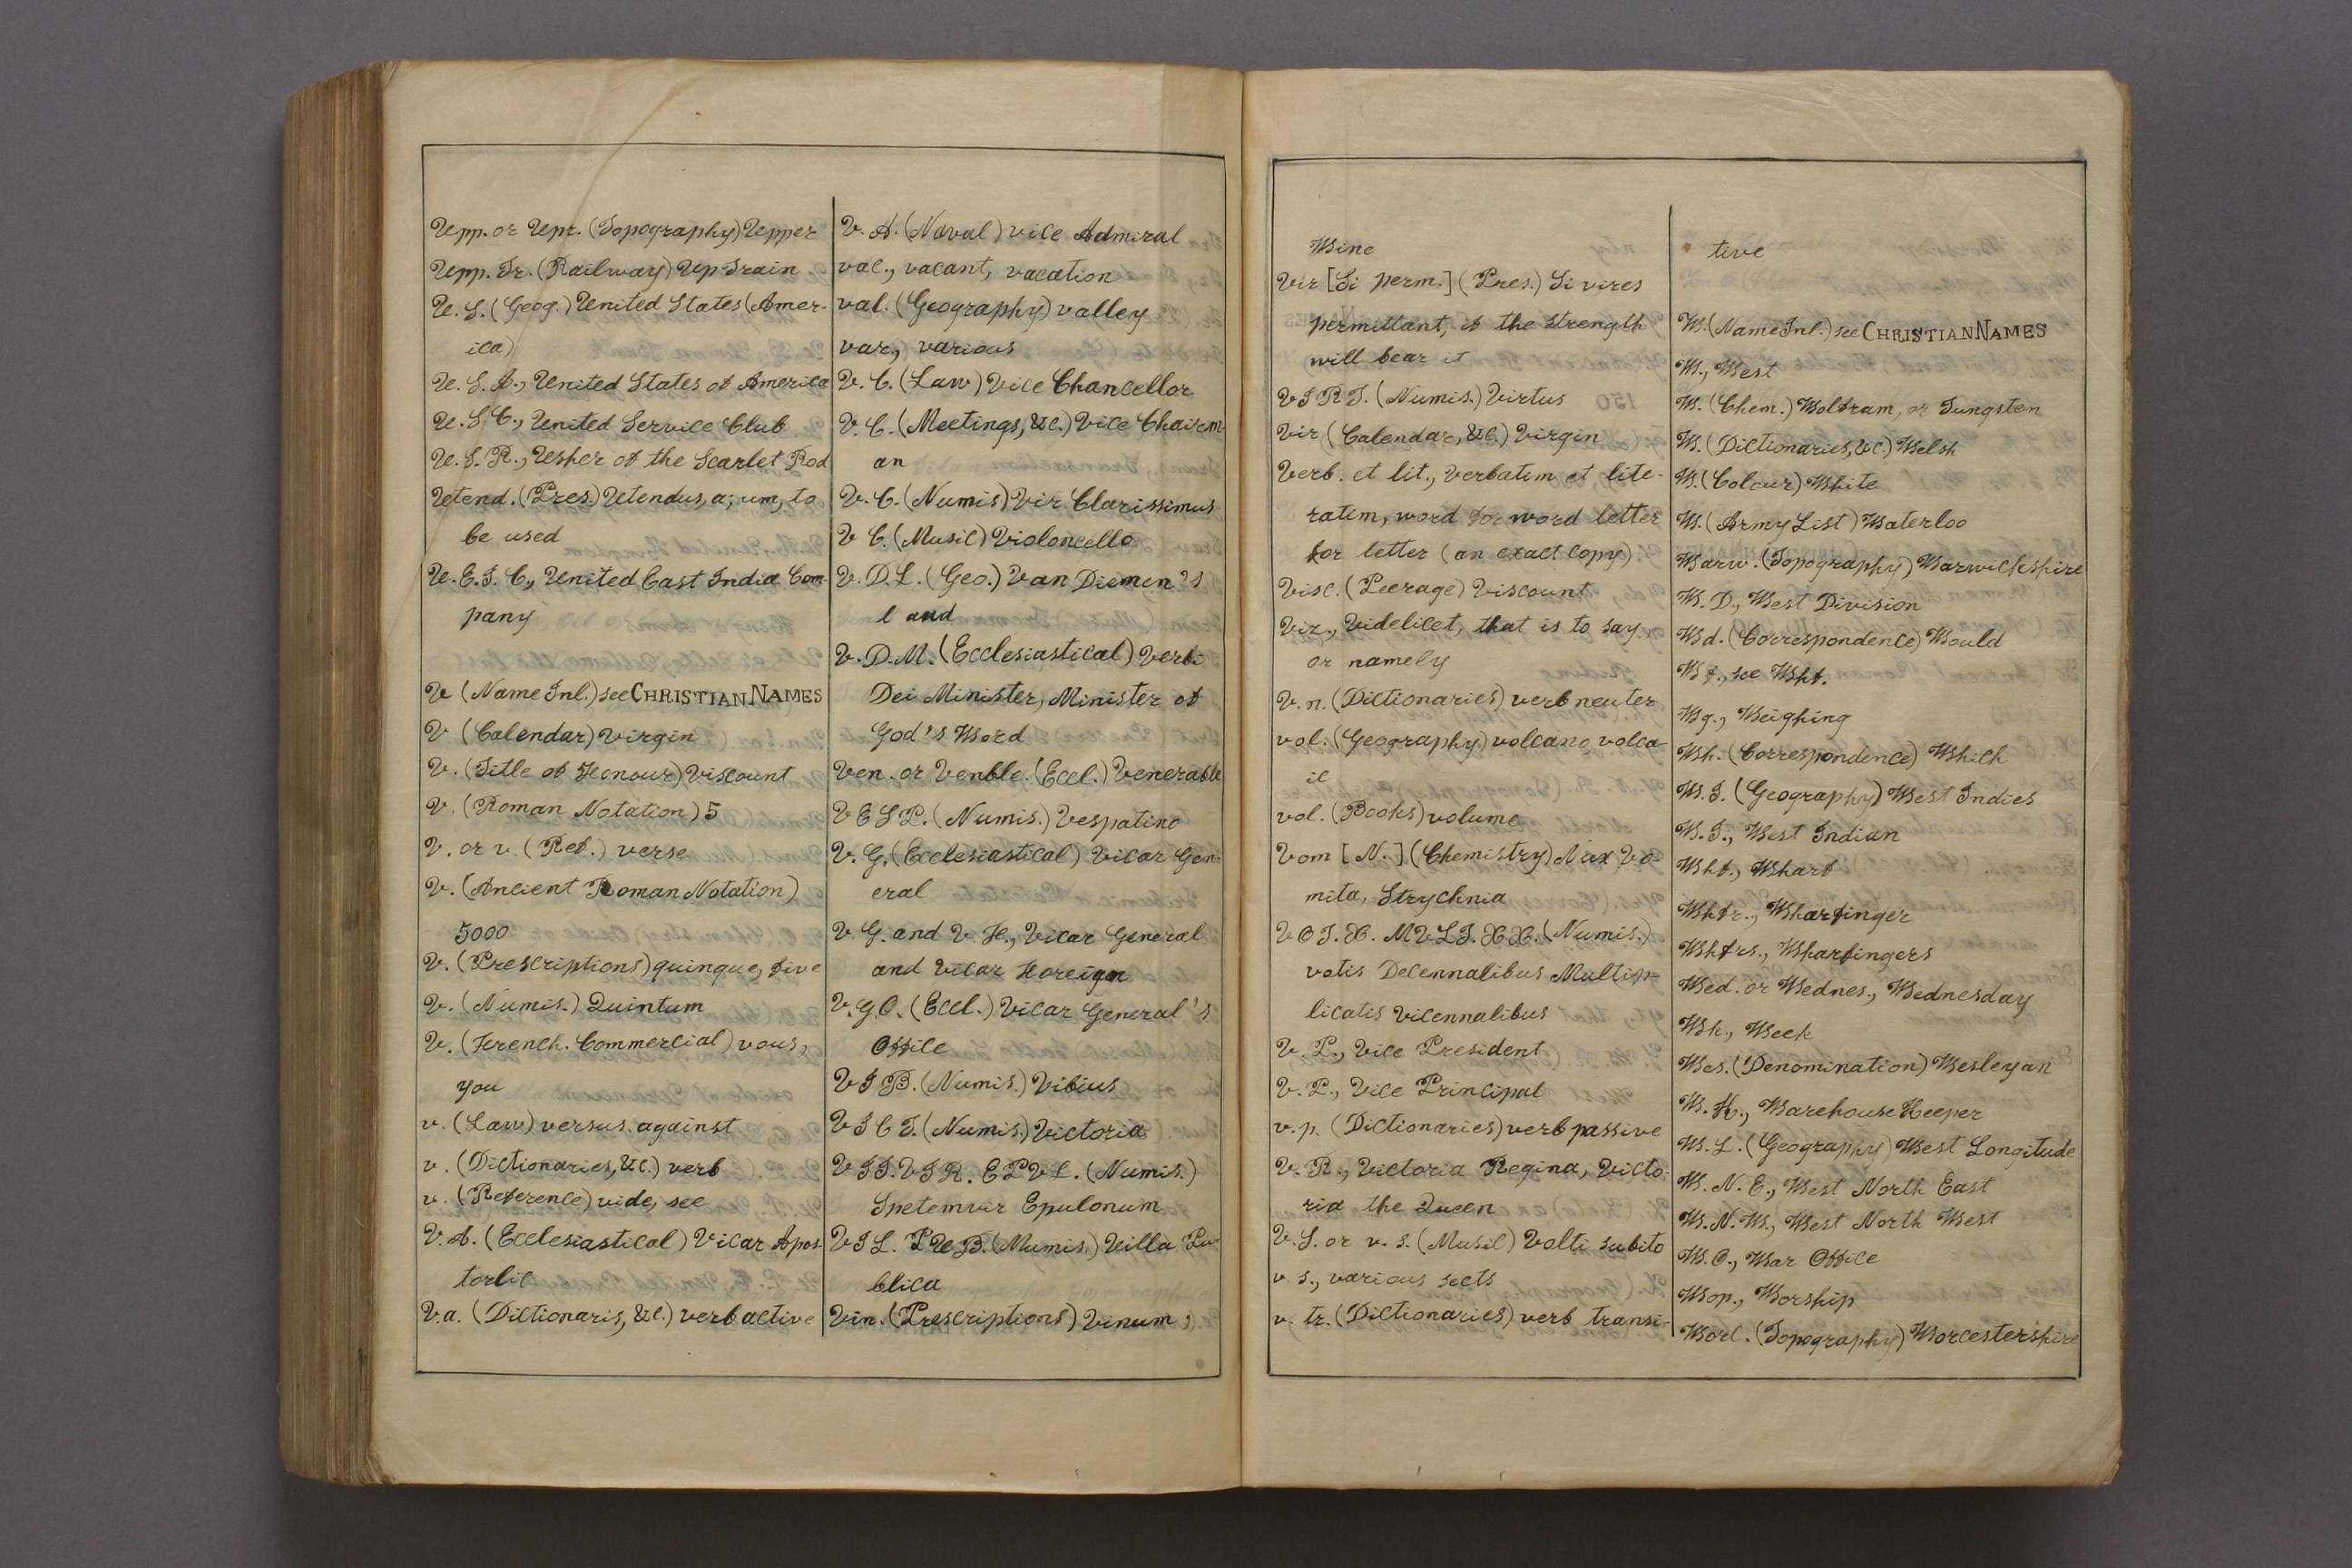 Upp. or Upr. (Topography) Upper
Upp. Tr. (Railway) Up Train
U. S. (Geog.) United States (Amer-
ica)
U. S. A., United States of America
U. S. C., United Service Club
U. S. R., Usher of the Scarlet Rod
Utend. (Pres.) Utendus, a; um, to
be used
U. E. I. C., United East India Com-
pany
V (Name Inl.) see CHRISTIAN NAMES
V (Calendar) Virgin
V. (Title of Honour) Viscount
V. (Roman Notation) 5
V. or v. (Ref.) verse
V. (Ancient Roman Notation)
5000
V. (Prescriptions) quinque, five
V. (Numis.) Quintum
V. (French. Commercial) vous,
you
v. (Law) versus against
v. (Dictionaries, &c.) verb
v. (Reference) vide, see
V. A. (Ecclesiastical) Vicar Apos-
torlic
V.a. (Dictionaris, &c.) verb active
V. A. (Naval) vice Admiral
vac., vacant, vacation
val. (Geography) valley
var., various
V. C. (Law) Vice Chancellor
V. C. (Meetings, &c.) Vice Chairm-
an
V. C. (Numis) Vir Clarissimus
V C. (Music) Violoncello
V. D. L. (Geo.) Van Diemen's
land
V. D. M. (Ecclesiastical) Verbi
Dei Minister, Minister of
God's Word
Ven. or Venble. (Eccl.) Venerable
V E S P. (Numis.) Vespatino
V. G. (Ecclesiastical) Vicar Gen-
eral
V. G. and V. F., Vicar General
and Vicar Foreign
V. G. O. (Eccl.) Vicar General's
Office
V I B. (Numis.) Vibius
V I C T. (Numis.) Victoria
V I I. V I R. E P V L. (Numis.)
Spetemvir Epulonum
V I L. P U B. (Numis.) Villa Pu-
blica
Vin. (Prescriptions) Vinum,
Wine
Vir [Si perm.] (Pres.) Si vires
permittant, if the strength
will bear it
V I R T. (Numis.) Virtus
Vir (Calendar, &c.) Virgin
Verb. et lit., Verbatim et lite-
ratim, word for word letter
for letter (an exact copy)
Visc. (Peerage) Viscount
Viz., Videlicet, that is to say,
or namely
V. n. (Dictionaries) verb neuter
vol. (Geography) volcano, volca-
ic
vol. (Books) volume
Vom [N.] (Chemistry) Nux Vo-
mita, Strychnia
V O T. X. M V L T. X X. (Numis.)
votis Decennalibus Multip-
licatis Vicennalibus
V. P., Vice President
V. P., Vice Principal
v. p. (Dictionaries) verb passive
V. R., Victoria Regina, Victo-
ria the Queen
V. S. or v. s. (Music) Volti subito
v. s., various sects
v. tr. (Dictionaries) verb transi-
tive
W. (Name Inl.) see CHRISTIAN NAMES
W., West
W. (Chem.) Wolfram, or Tungsten
W. (Dictionaries, &c.) Welsh
W. (Colour) White
W. (Army List) Waterloo
Warw. (Topography) Warwickshire
W. D., West Division
Wd. (Correspondence) Would
Wf., see Whf.
Wg., Weighing
Wh. (Correspondence) Which
W. I. (Geography) West Indies
W. I., West Indian
Whf., Wharf
Whfr., Wharfinger
Whfrs., Wharfingers
Wed. or Wednes., Wednesday
Wk., Week
Wes. (Denomination) Wesleyan
W. K., Warehouse Keeper
W. L. (Geography) West Longitude
W. N. E., West North East
W. N. W., West North West
W. O., War Office
Wop., Worship
Worc. (Topography) Worcestershire